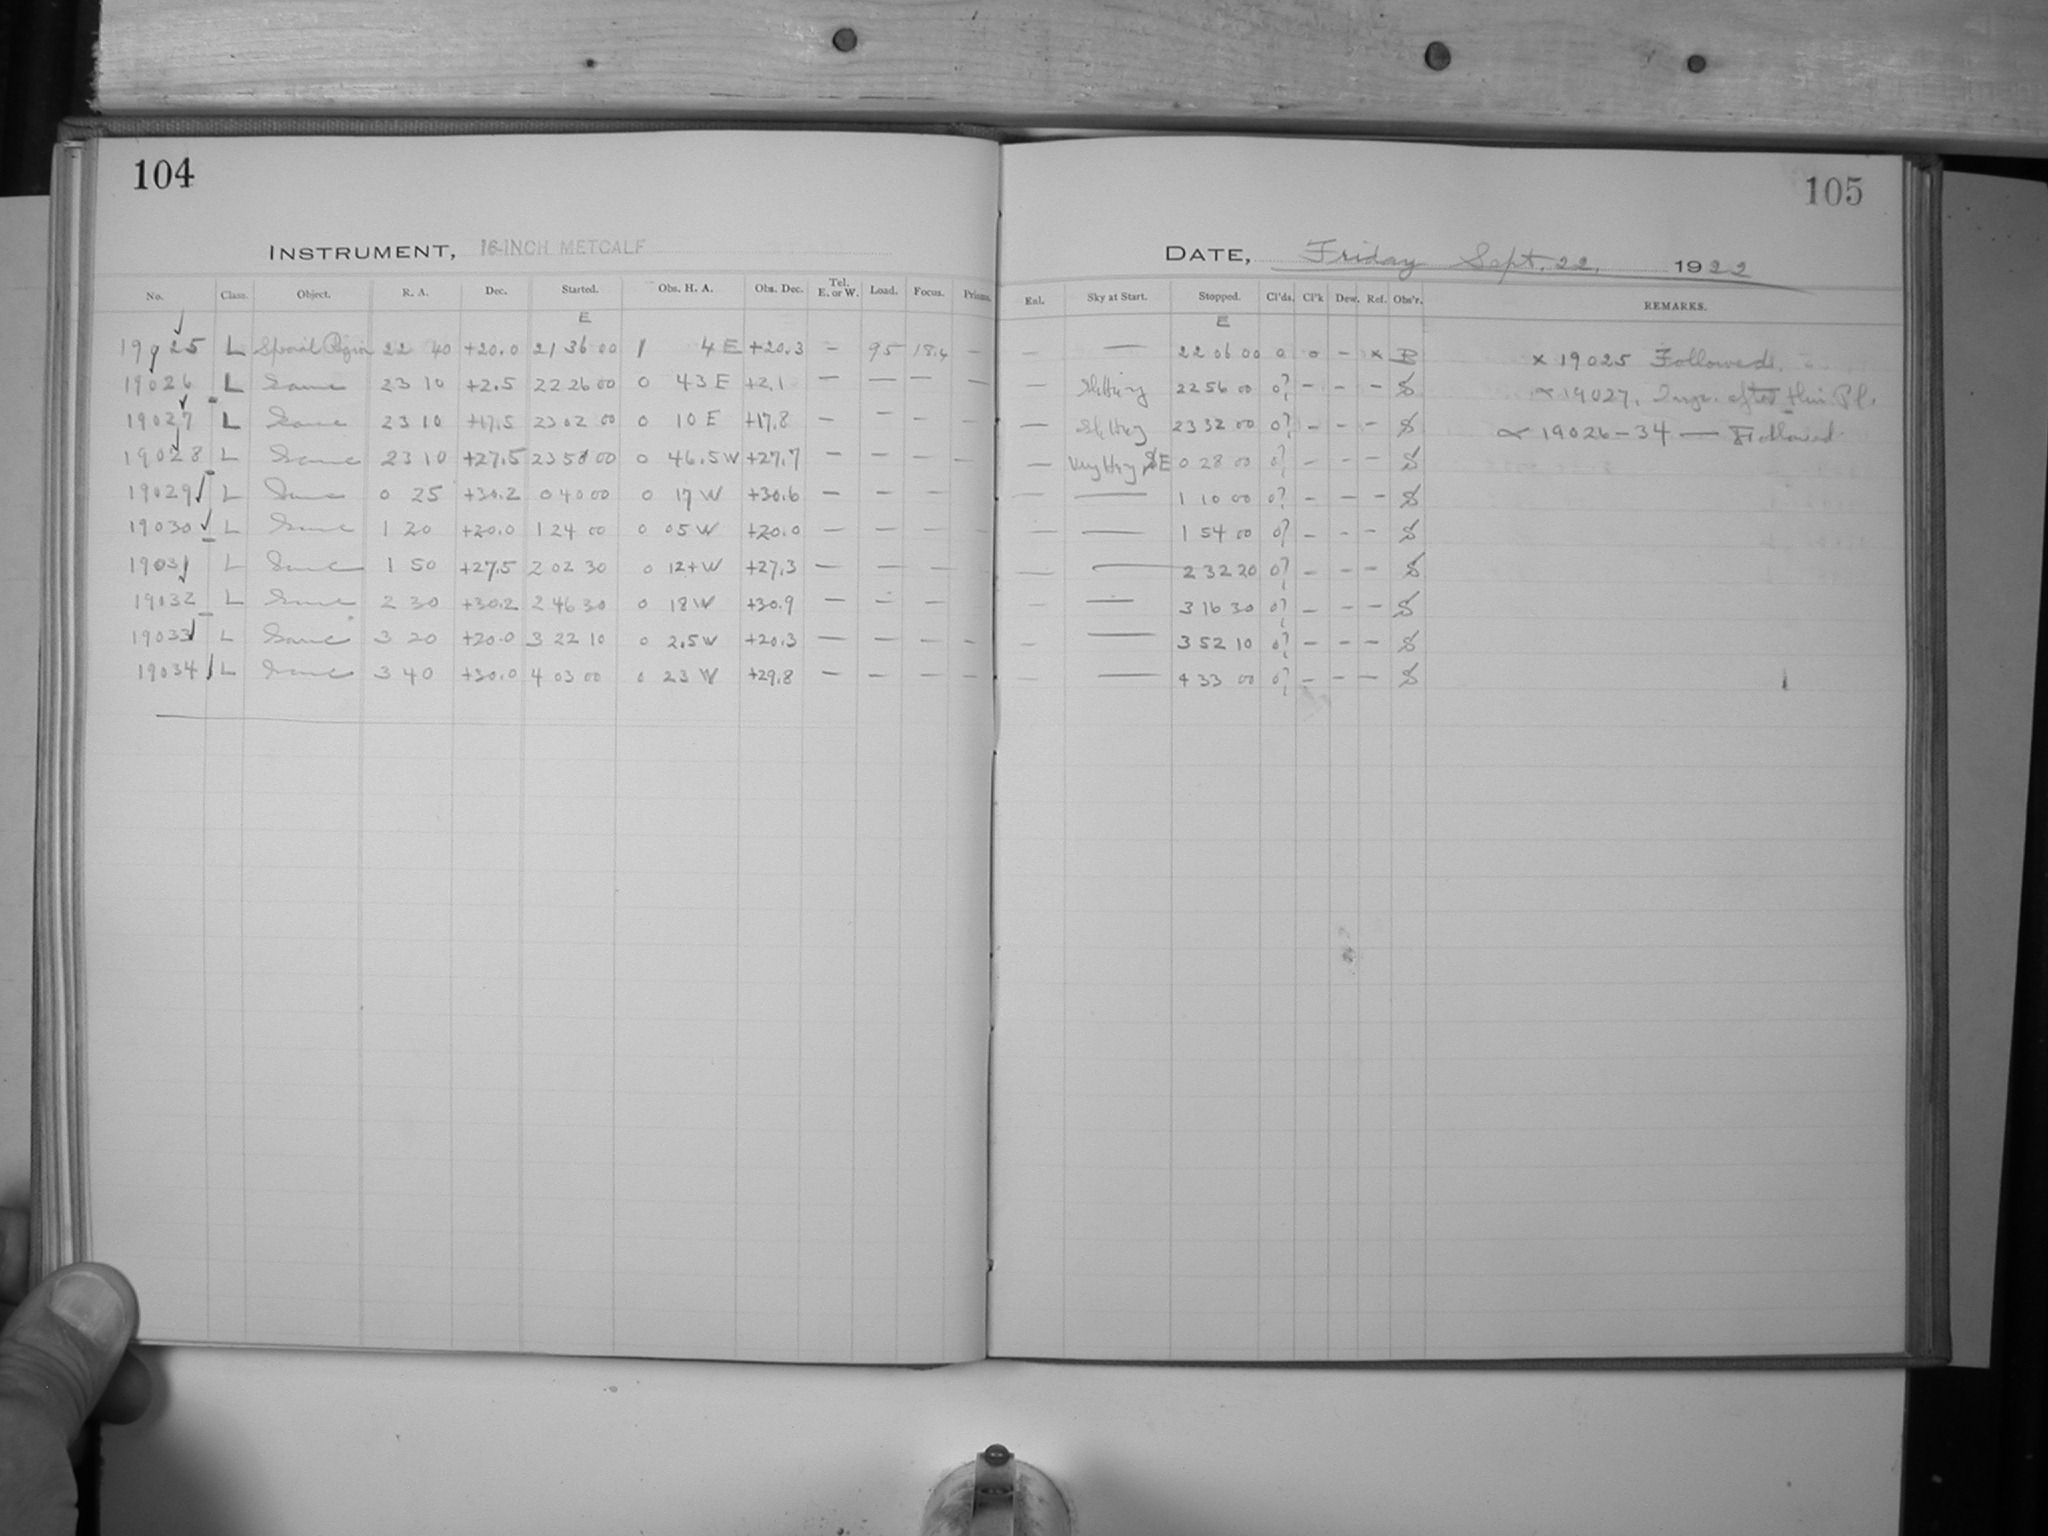 104
INSTRUMENT, 16-INCH METCALF
No. Class. Object. R. A. Dec. Started. Obs. H. A. Obs. Dec. Tel. E. or W. Load. Focus. Prisms.
E
19025 L Special Region 22 40 +20.0 21 36 00 1 4 E +20.3 — 95 18.4 —
19026 L Same 23 10 +2.5 22 26 00 0 43 E +2.1 — — — —
19027 L Same 23 10 +17.5 23 02 00 0 10 E +17.8 — — — —
19028 L Same 23 10 +27.5 23 58 00 0 46.5 W +27.7 — — — —
19029 L Same 0 25 +30.2 0 40 00 0 17 W +30.6 — — — —
19030 L Same 1 20 +20.0 1 24 00 0 05 W +20.0 — — — —
19031 L Same 1 50 +27.5 2 02 30 0 12+ W +27.3 — — — —
19032 L Same 2 30 +30.2 2 46 30 0 18 W +30.9 — — —
19033 L Same 3 20 +20.0 3 22 10 0 2.5 W +20.3 — — — —
19034 L Same 3 40 +30.0 4 03 00 0 23 W +29.8 — — — —
105
DATE, Friday Sept. 22, 1922
Enl. Sky at Start. Stopped. Cl'ds. Cl'k Dew. Ref. Obs'r. REMARKS.
E
— — 22 06 00 0 0 — x B x 19025 Followed.
— Sl. Hazy 22 56 00 0? — — — S ∝ 19027, after this Pl.
— Sl. Hazy 23 32 00 0? — — — S ∝ 19026–34 — Followed
— Very Hazy SE 0 28 00 0? — — — S
— — 1 10 00 0? — — — S
— — 1 54 00 0? — — — S
— — 2 32 20 0? — — — S
— — 3 16 30 0? — — — S
— — 3 52 10 0? — — — S
— — 4 33 00 0? — — — S